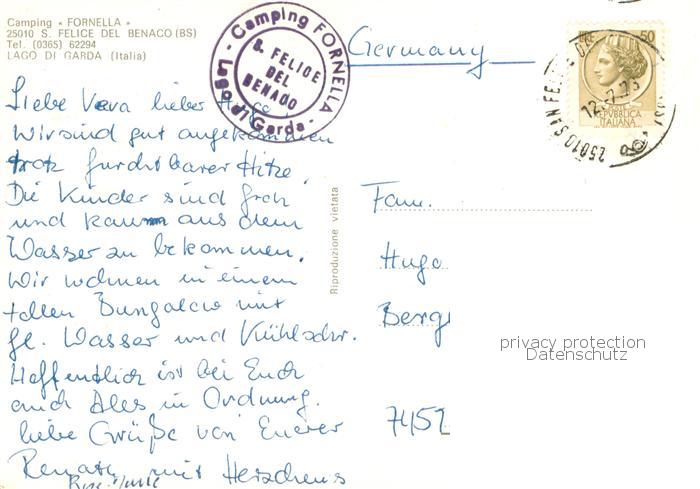 Camping « FORNELLA »
25010 S. FELICE DEL BENACO (BS)
Tel. (0365) 62294
LAGO DI GARDA (Italia)
Camping FORNELLA
S. FELICE
DEL
BENACO
- Lago di Garda -
Germany
50
REPUBBLICA
ITALIANA
25010 SAN FELICE D
12-7-73
Liebe Vera lieber
Wir sind gut angekommen
trotz furchtbarer Hitze.
Die Kinder sind froh
und kaum aus dem
Wasser zu bekommen.
Wir wohnen in einem
tollen Bungalow mit
fl. Wasser und Kühlschr.
Hoffentlich ist bei Euch
auch Alles in Ordnung.
liebe Grüße von Eurer
Renate mit Herschens
Riproduzione vietata
Fam.
Hugo
Berg
7415
privacy protection
Datenschutz